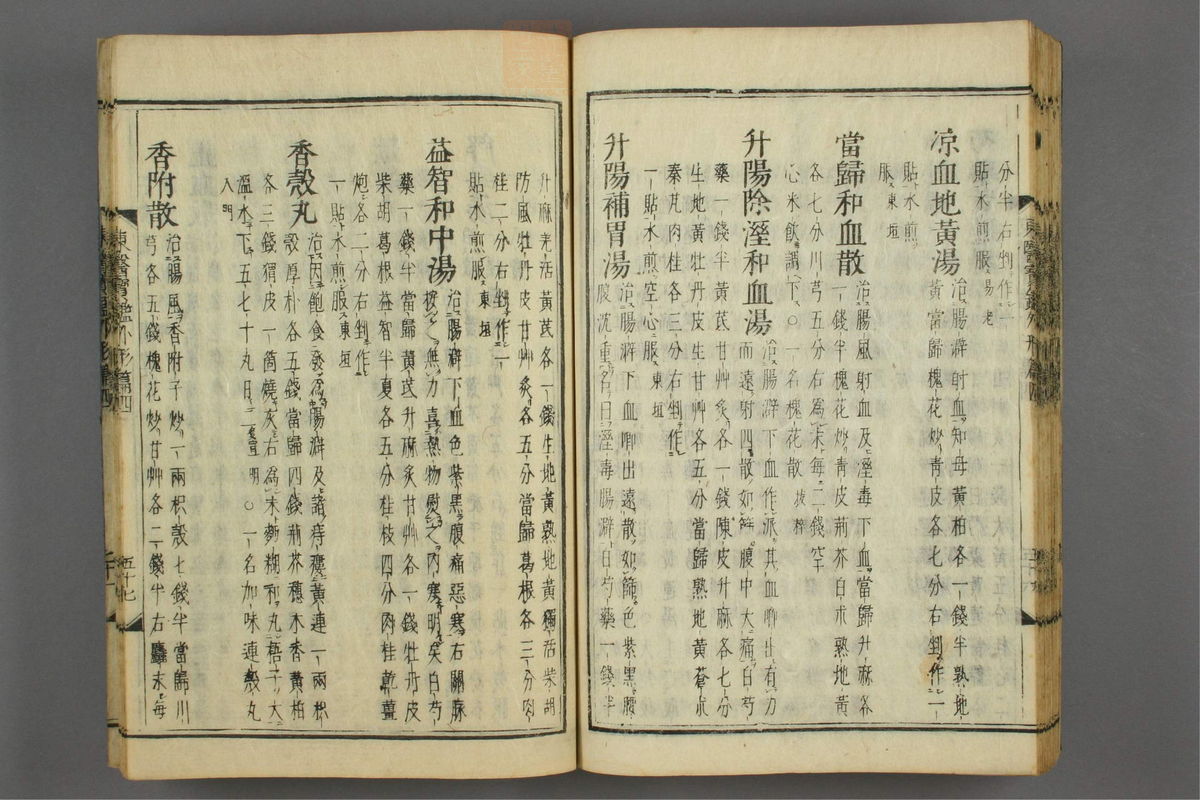 分半右剉作一
貼水煎服 易老
涼血地黃湯 治腸澼射血知母黃柏各一錢半熟地
黃當歸槐花炒靑皮各七分右剉作一
貼水煎
服 東垣
當歸和血散 治腸風射血及溼毒下血當歸升麻各
一錢半槐花炒靑皮荊芥白朮熟地黃
各七分川芎五分右爲末每二錢空
心米飮調下○一名槐花散 拔粹
升陽除溼和血湯 治腸澼下血作派其血唧出有力
而遠射四散如篩腹中大痛白芍
藥一錢半黃芪甘艸炙各一錢陳皮升麻各七分
生地黃牡丹皮生甘艸各五分當歸熟地黃蒼朮
秦艽肉桂各三分右剉作
一貼水煎空心服 東垣
升陽補胃湯 治腸澼下血唧出遠散如篩色紫黑腰
腹沈重名曰溼毒腸澼白芍藥一錢半
升麻羌活黃芪各一錢生地黃熟地黃獨活柴胡
防風牡丹皮甘艸炙各五分當歸葛根各三分肉
桂二分右剉作一
貼水煎服 東垣
益智和中湯 治腸澼下血色紫黑腹痛惡寒右關脉
按之無力喜熱物熨之內寒明矣白芍
藥一錢半當歸黃芪升麻炙甘艸各一錢牡丹皮
柴胡葛根益智半夏各五分桂枝四分肉桂乾薑
炮各二分右剉作
一貼水煎服 東垣
香殼丸 治因飽食發爲腸澼及諸痔瘻黃連一兩枳
殼厚朴各五錢當歸四錢荊芥穗木香黃柏
各三錢猬皮一箇燒灰右爲末麪糊和丸梧子大
溫水下五七十丸日二 宣明○一名加味連殼丸
入門
香附散 治腸風香附子炒一兩枳殼七錢半當歸川
芎各五錢槐花炒甘艸各二錢半右麤末每
東醫寶鑑外形篇四
五十七